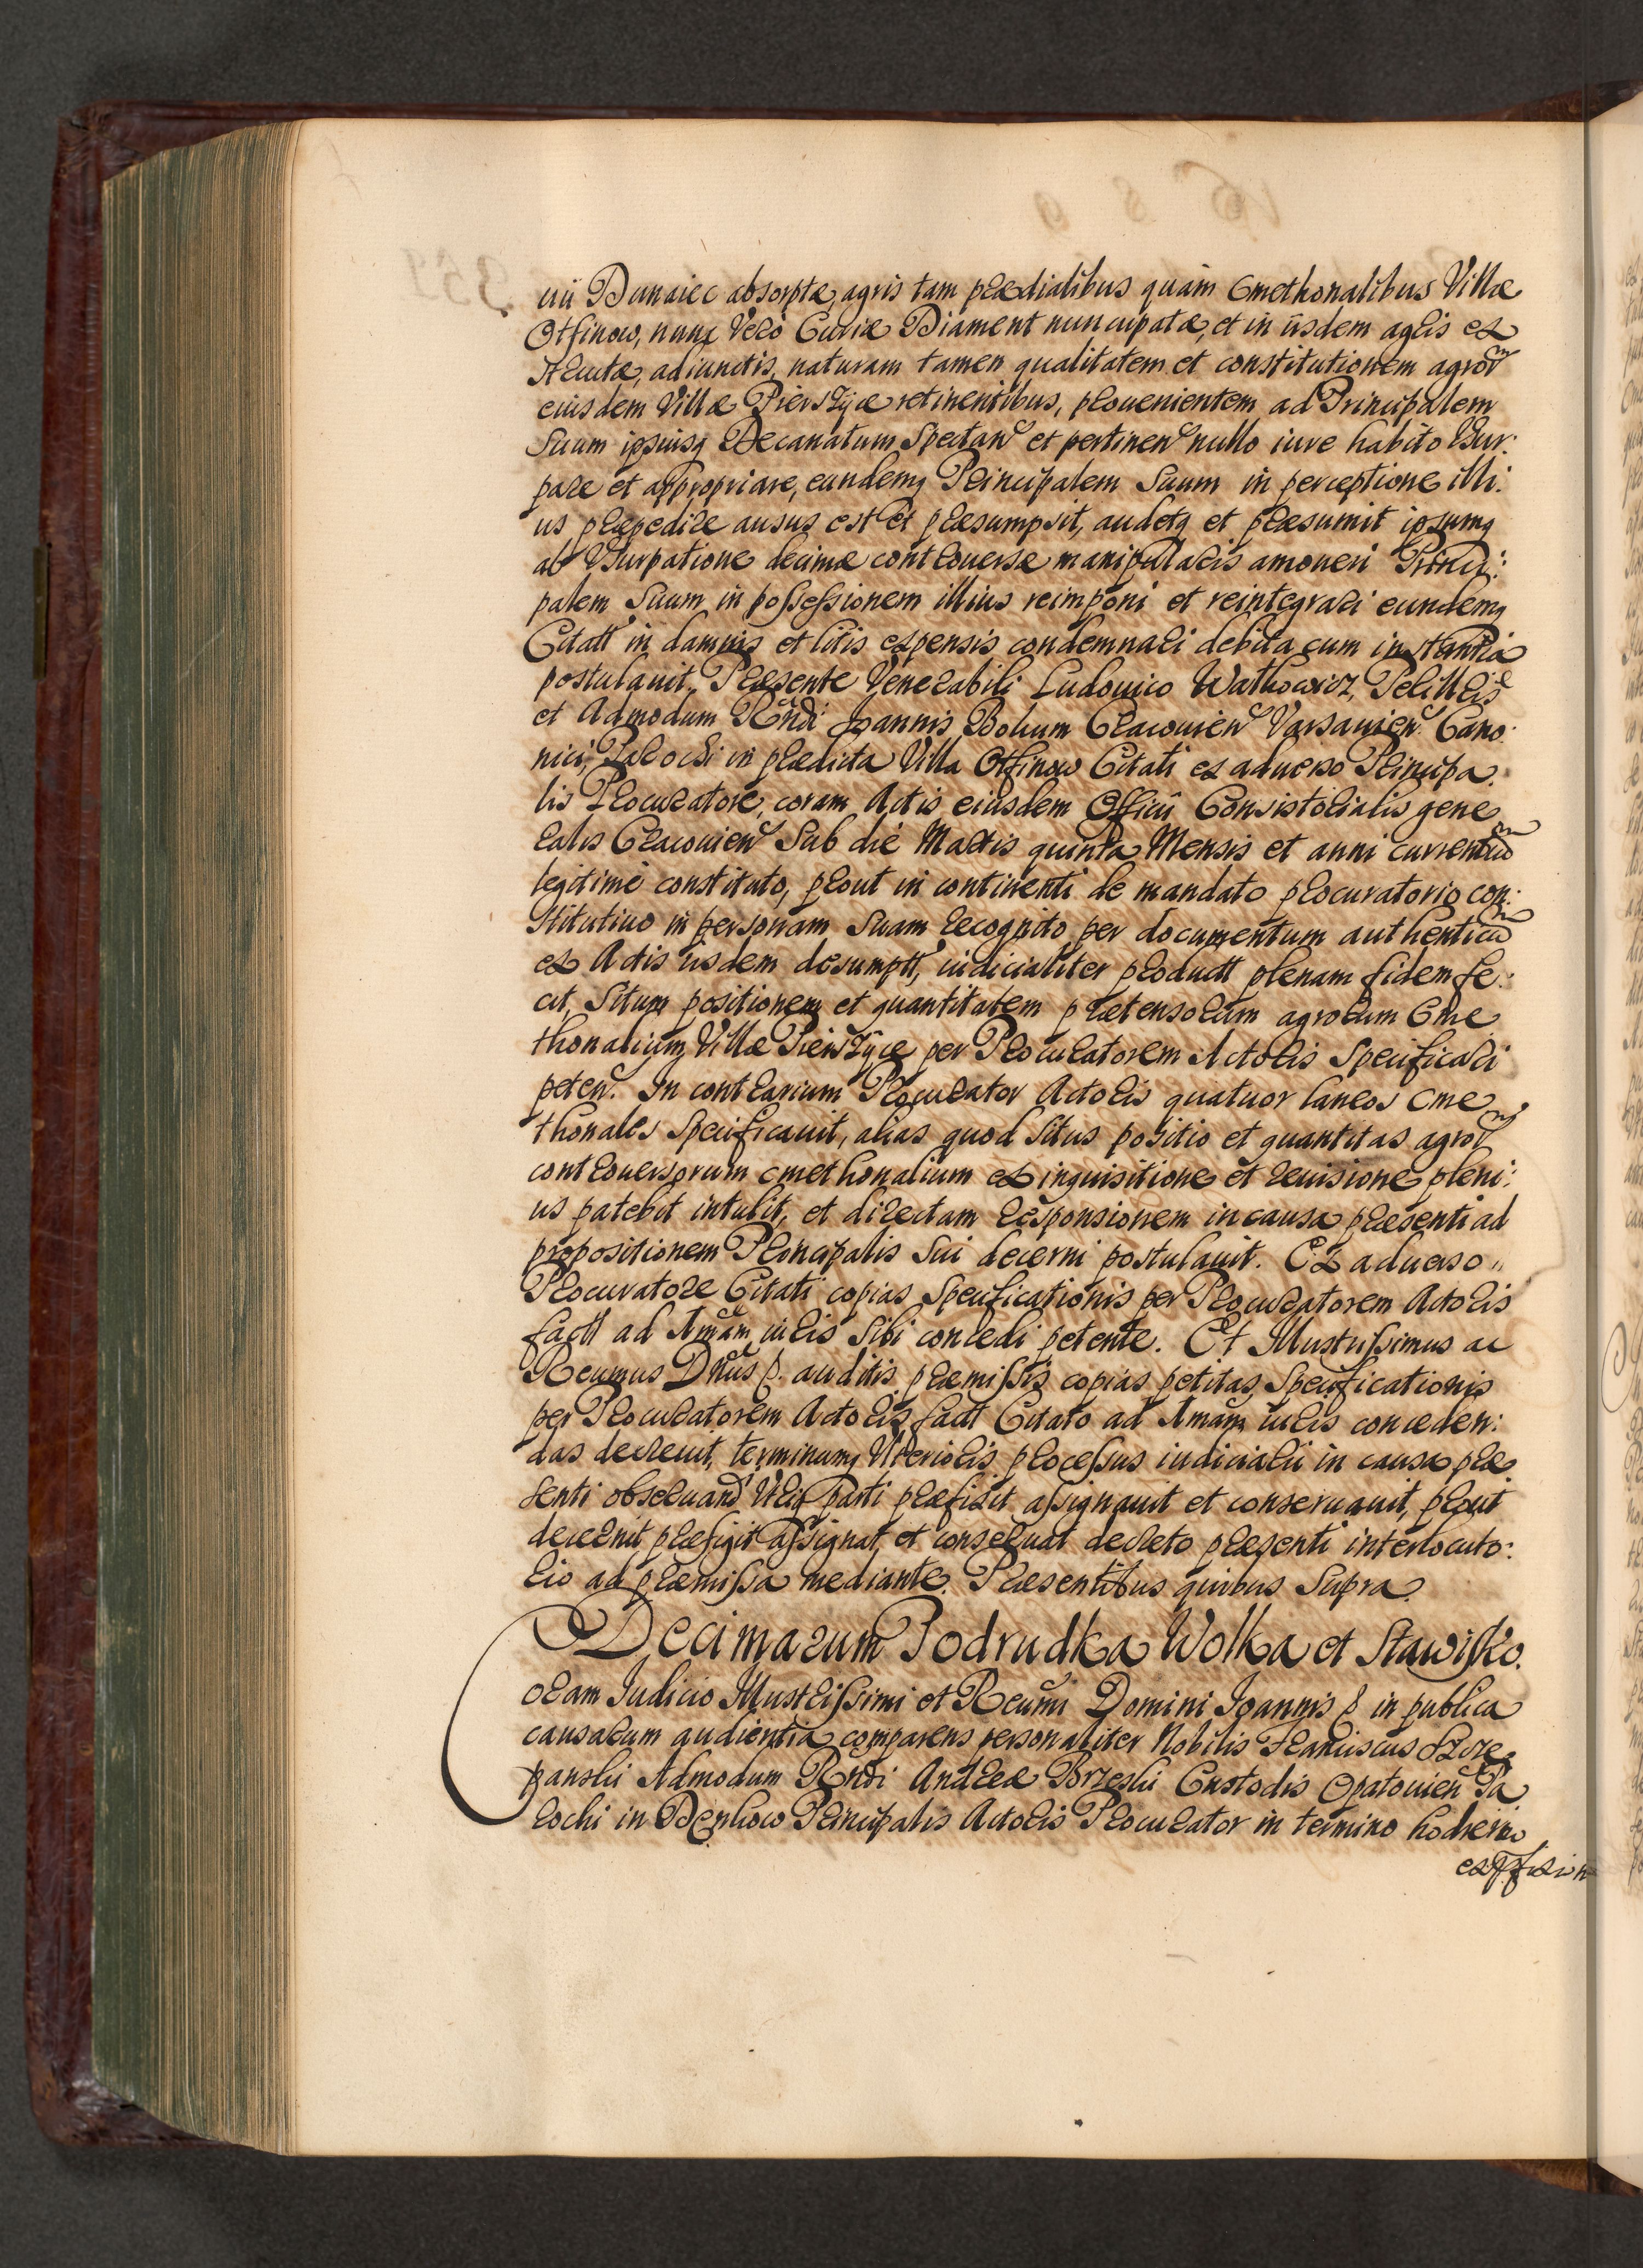 uii Dunaiec absorptæ, agris tam prædialibus quàm Cmethonalibus Villæ
Otfinow, nunc verò Curiæ Diament nuncupatæ, et in iisdem agris ex
structæ, adiunctis, naturam tamen qualitatem et constitutionem agror̃
eiusdem Villæ Pierszyce retinentibus, prouenientem ad Principalem
Suum ipsiusq Decanatum Spectan̄ et pertinen̄ nullo iure habito Vsur:
pare et appropriare, eundemq Principalem Suum in perceptione illi:
us præpedire ausus est et præsumpsit, audetq et præsumit ipsumq
ab Vsurpatione decimæ controuersæ manipularis amoueri Princi:
palem Suum in possessionem illius reimponi et reintegrari eundemq
Citatt in damnis et litis expensis condemnari debita cum instantia
postulauit. Præsente Venerabili Ludouico Wathowicz,
et Admodum Rñdi Joannis Bohum Cracouien̄ Varsauien̄ Cano:
nici, Parochi in prædicta Villa Otfinow Citati ex aduerso Principa
lis Procuratore, coram Actis eiusdem Officii Consistorialis gene
ralis Cracouien̄ Sub die Martis quinta Mensis et anni currentiũ
legitimè constituto, prout in continenti de mandato procuratorio con:
stitutiuo in personam Suam recognito per documentum authenticũ
ex Actis iisdem desumptt, iudicialiter productt plenam fidem fe:
cit, Situm positionem et quantitatem prætensorum agrorum Cme
thonalium Villæ Pierszyce per Procuratorem Actoris Specificari
peten̄. In contrarium Procurator Actoris quatuor laneos Cme
thonales Specificauit, alias quod Situs positio et quantitas agror̃
controuersorum cmethonalium ex inquisitione et reuisione pleni:
us patebit intulit, et directam responsionem in causa præsenti ad
propositionem Principalis Sui decerni postulauit. Ex aduerso
Procuratore Citati copias Specificationis per Procuratorem Actoris
factt ad Amãm iuris Sibi concedi petente. Et Illustrissimus ac
Reumus Dñus &. auditis præmissis copias petitas Specificationis
per Procuratorem Actoris factt Citato ad Amãm iuris conceden:
das decreuit, terminumq Vlterioris processus iudiciarii in causa præ
senti obseruand̄ Vtriq parti præfixit assignauit et conseruauit, prout
decernit præfigit assignat, et conseruat decreto præsenti interlocuto:
rio ad præmissa mediante. Præsentibus quibus Supra.
Decimarum Podrudka Wolka et Stawisko.
Coram Iudicio Illustrissimi et Reumi Domini Joannis & in publica
causarum audientia comparens personaliter Nobilis Franciscus Szcze
panski Admodum Rñdi Andreæ Borzeski Custodis Opatouien̄ Pa
rochi in Denkow Principalis Actoris Procurator in termino hodierno